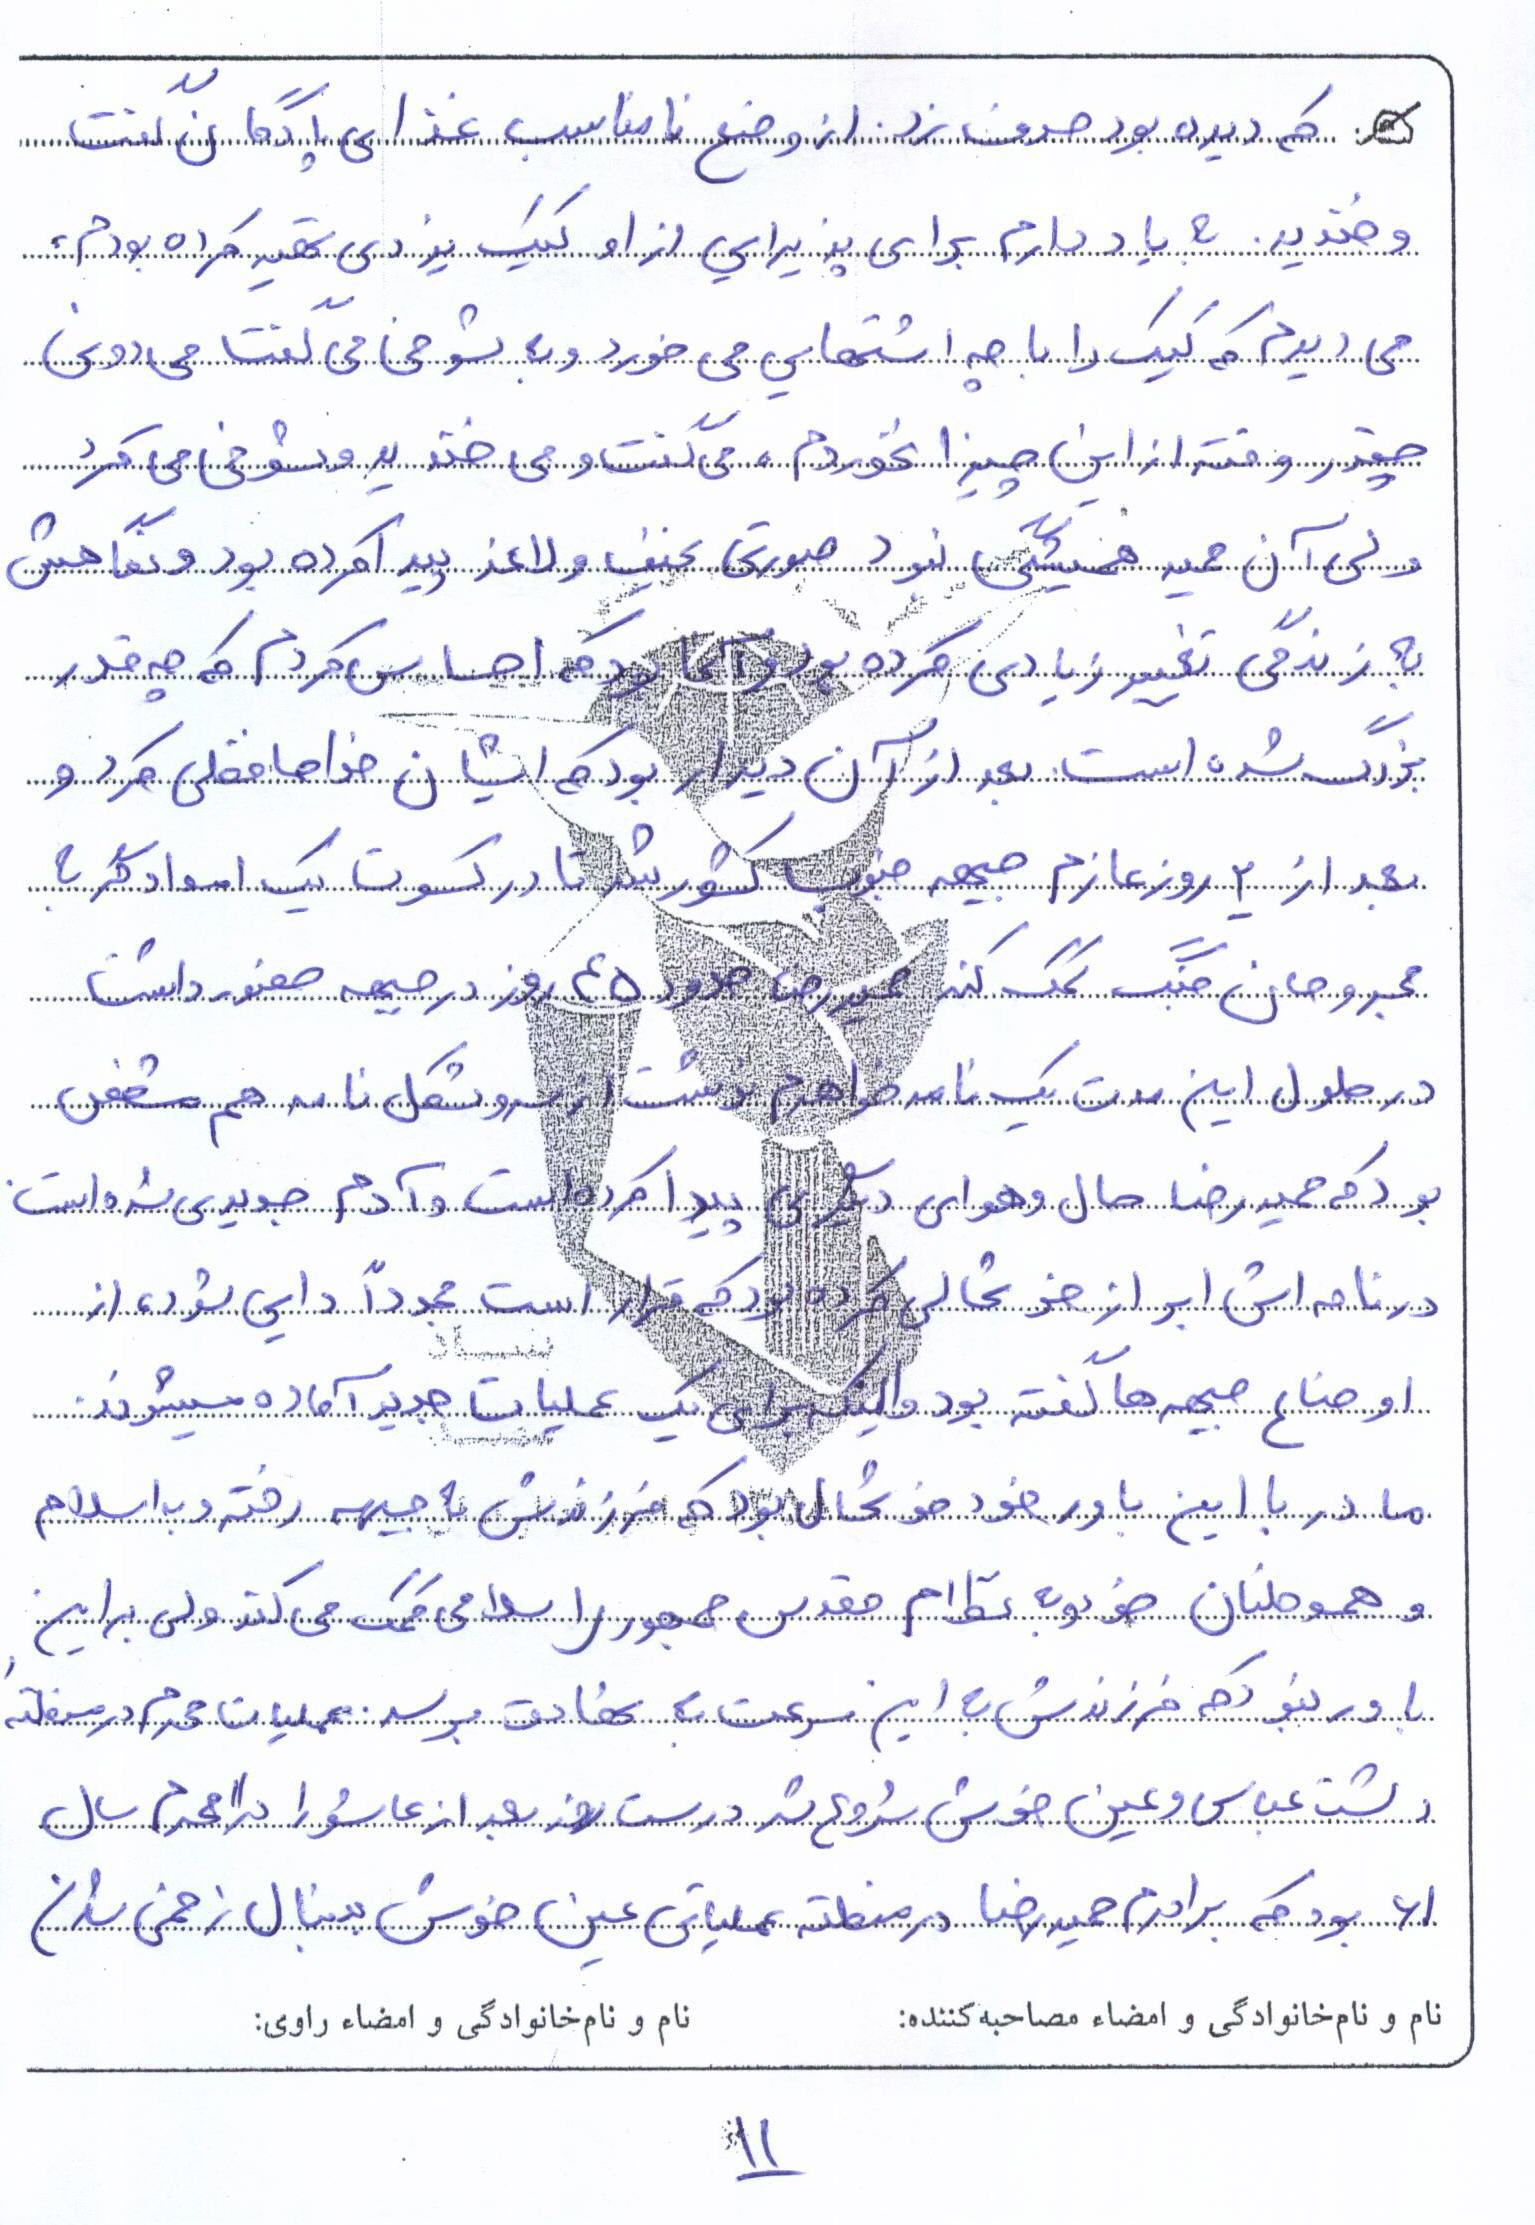 که دیده بود حرف زد. از وضع نامناسب غذای پادگان گفت
و خندید. به یاد دارم برای پذیرایی از او کیک یزدی تهیه کرده بودم،
می دیدم که کیک را با چه اشتهایی می خورد و به شوخی می گفت می دونی
چقدر وقته از این چیزا نخوردم، می گفت و می خندید و شوخی می کرد
ولی آن حمید همیشگی نبود صورتی نحیف و لاغر پیدا کرده بود و نگاهش
به زندگی تغییر زیادی کرده بود و آنجا بود که احساس کردم که چه قدر
بزرگ شده است. بعد از آن دیدار بود که ایشان خداحافظی کرد و
بعد از ۲ روز عازم جبهه جنوب کشور شد تا در کسوت یک امدادگر به
مجروحان جنگ کمک کند حمیدرضا حدود ۴۵ روز در جبهه حضور داشت
در طول این مدت یک نامه خواهرم نوشت از سر و شکل نامه هم مشخص
بود که حمیدرضا حال و هوای دیگری پیدا کرده است و آدم جدیدی شده است.
در نامه اش ابراز خوشحالی کرده بود که قرار است مجدداً دایی شود، از
اوضاع جبهه ها گفته بود و اینکه برای یک عملیات جدید آماده میشوند.
مادر با این باور خود خوشحال بود که فرزندش به جبهه رفته و به اسلام
و هموطنان خود و به نظام مقدس جمهوری اسلامی کمک می کند ولی بر این
باور نبود که فرزندش به این سرعت به شهادت برسد. عملیات محرم در منطقه
دشت عباس و عین خوش شروع شد درست روز بعد از عاشورا در ۱۱ محرم سال
۶۱ بود که برادرم حمیدرضا در منطقه عملیاتی عین خوش بدنبال زخمی شدن
نام و نام‌خانوادگی و امضاء مصاحبه‌کننده: نام و نام‌خانوادگی و امضاء راوی:
۱۱